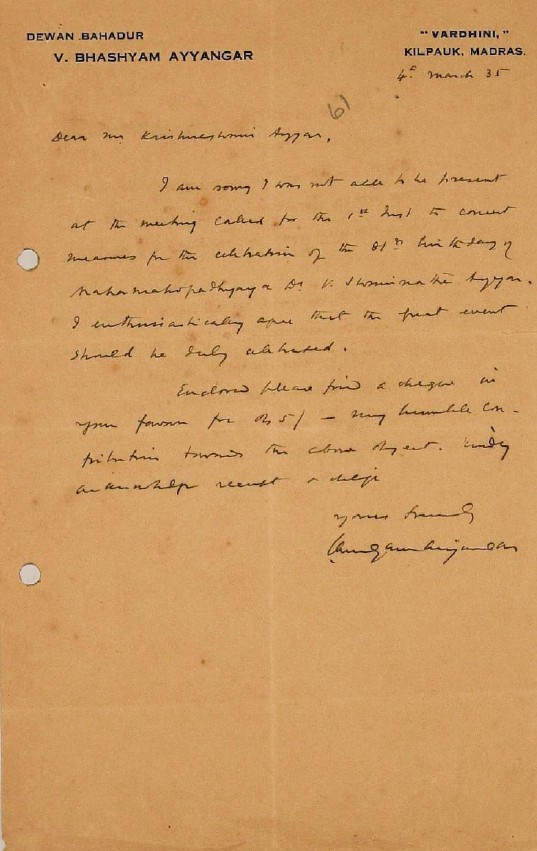 DEWAN BAHADUR
V. BHASHYAM AYYANGAR
"VARDHINI,"
KILPAUK, MADRAS.
4th March 35
61
Dear Mr Krishnaswami Ayyar,
I am sorry I was not able to be present
at the meeting called for the 1st Inst to concert
measures for the celebration of the 81st birthday of
Mahamahopadhyaya Dr V. Swaminatha Ayyar.
I enthusiastically agree that the great event
should be duly celebrated.
Enclosed please find a cheque in
your favour for Rs 5/ — my humble con-
tribution towards the above object. Kindly
acknowledge receipt & oblige
Yours